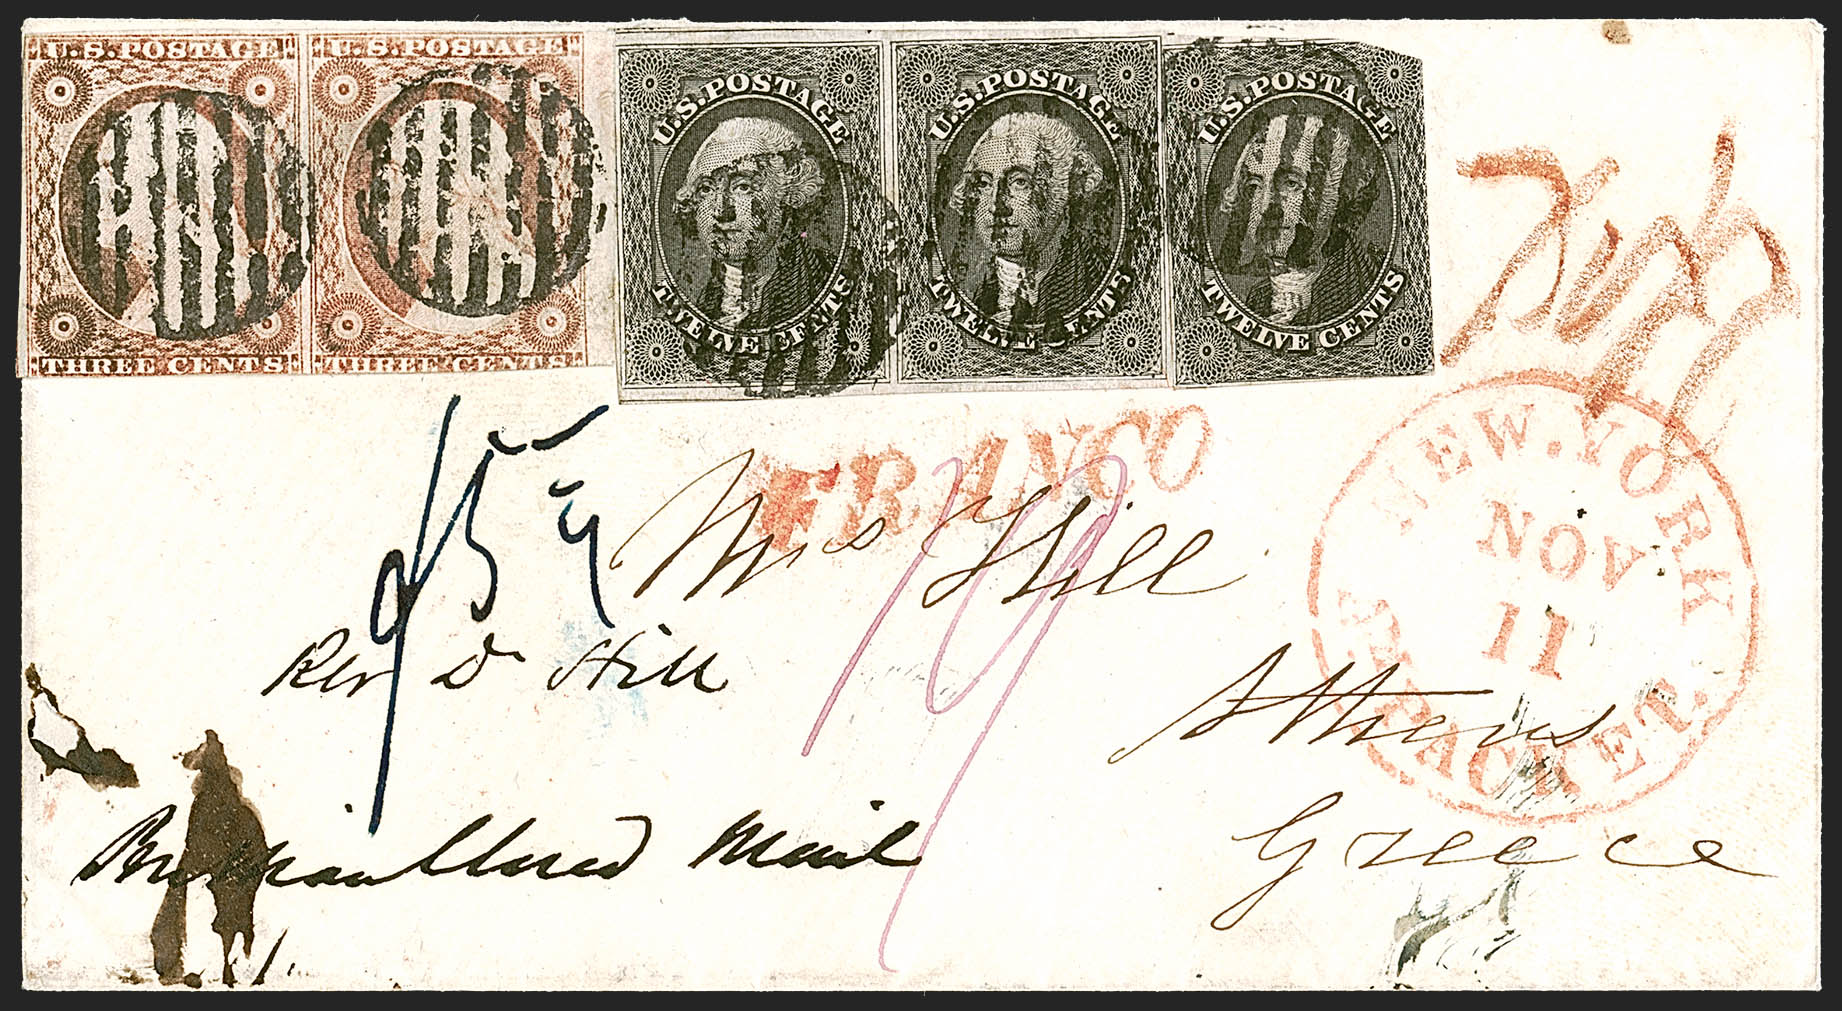 U.S. POSTAGE
THREE CENTS
U.S. POSTAGE
THREE CENTS
U.S. POSTAGE
TWELVE CENTS
U.S. POSTAGE
TWELVE CENTS
U.S. POSTAGE
TWELVE CENTS
FRANCO
NEW·YORK
NOV
11
PACKET.
Mrs Hill
Rev D Hill
Athens
Greece
Mail